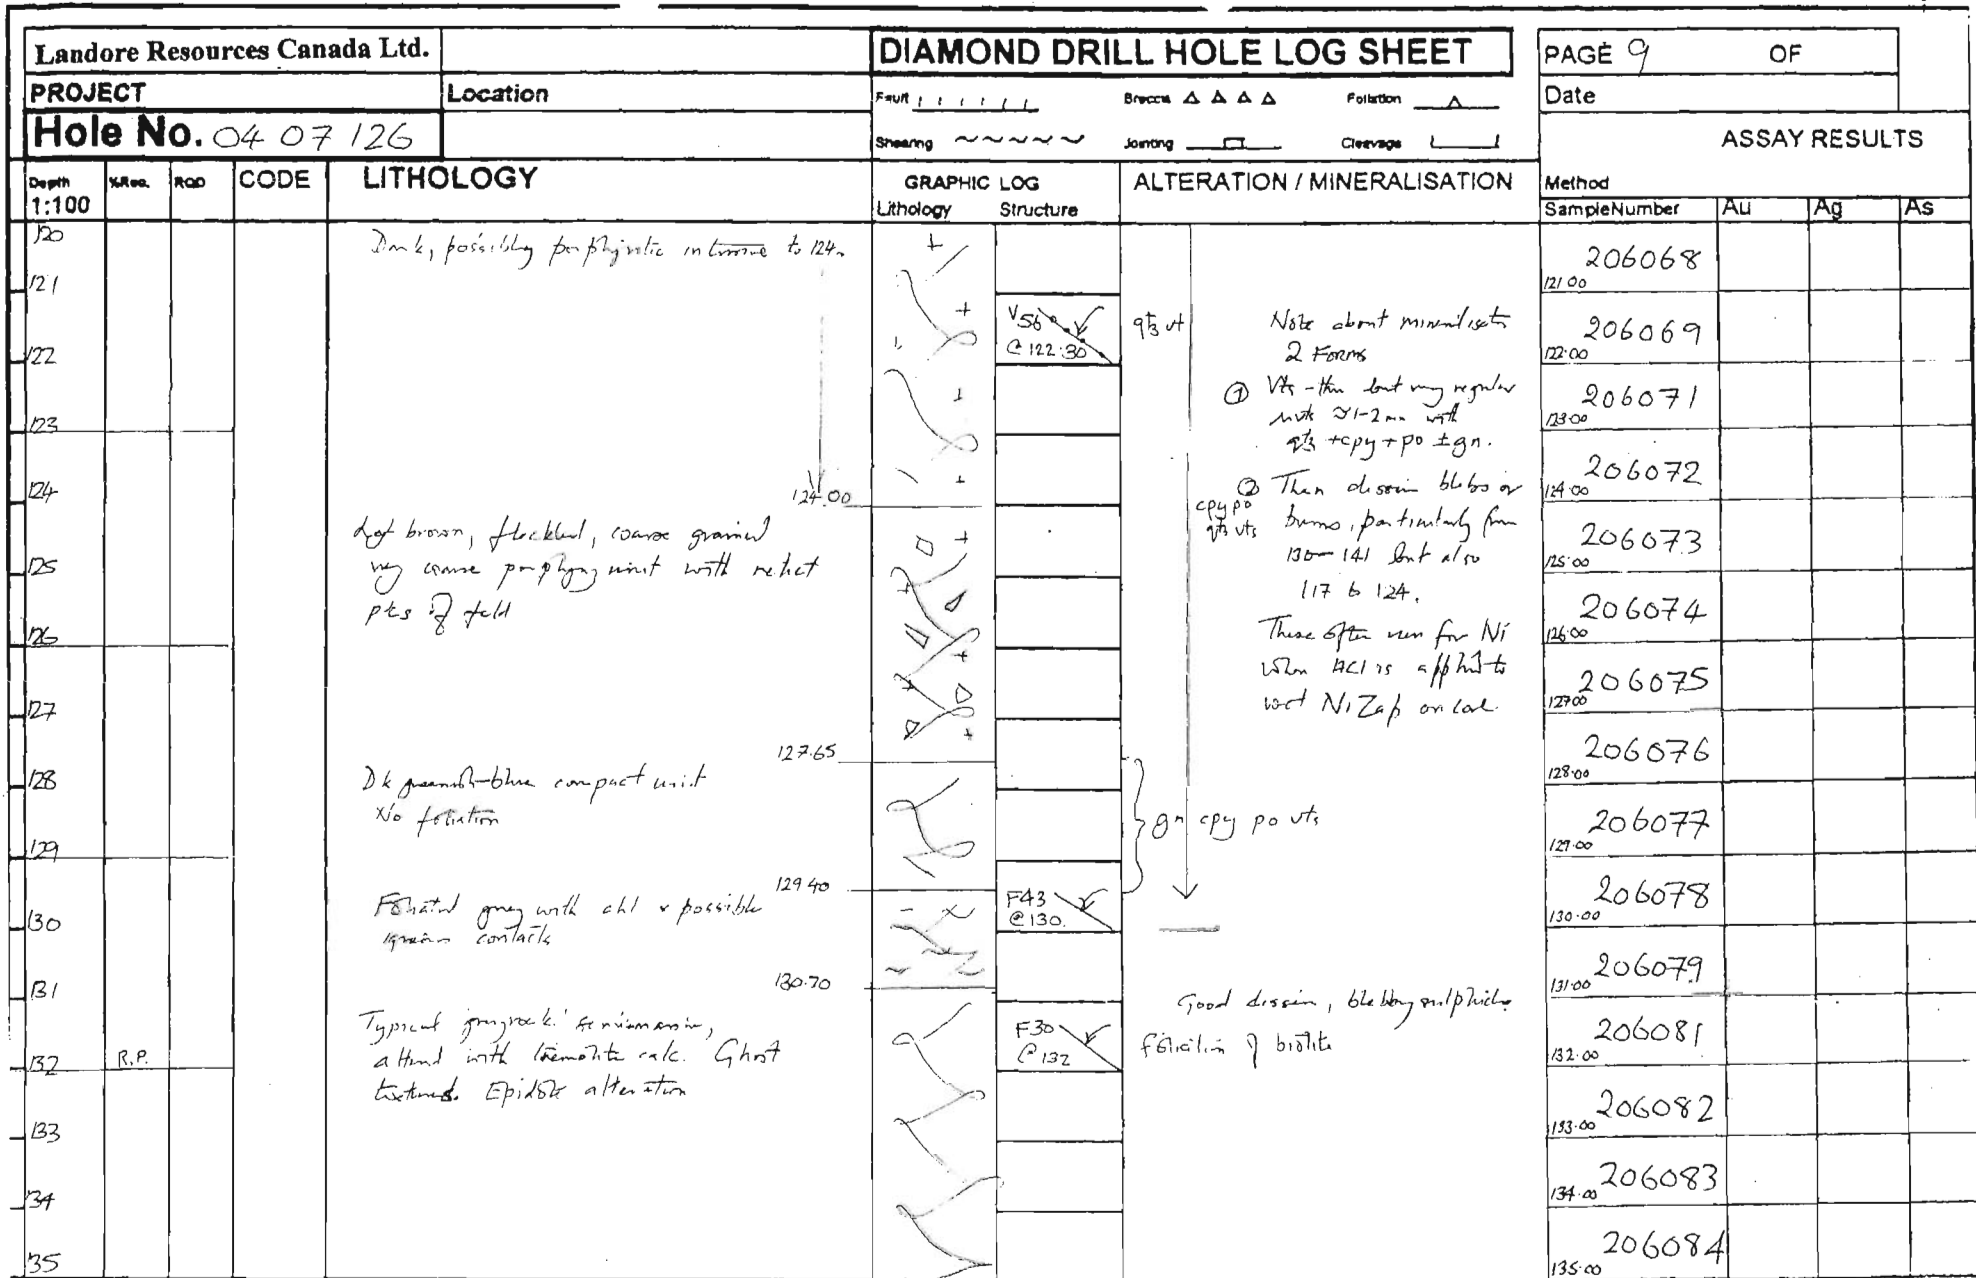 Landore Resources Canada Ltd.
DIAMOND DRILL HOLE LOG SHEET
PAGE 9 OF
PROJECT
Location
Fault
Breccia
Foliation
Date
Hole No. 04 07 126
Shearing
Jointing
Cleavage
ASSAY RESULTS
Depth 1:100
%Rec.
RQD
CODE
LITHOLOGY
GRAPHIC LOG
Lithology Structure
ALTERATION / MINERALISATION
Method
SampleNumber Au Ag As
120
121
122
123
124
125
126
127
128
129
130
131
132
R.P.
133
134
135
Dark, possibly porphyritic to 124
124.00
brown, coarse grained
coarse porphyry unit with relict
of feld
127.65
Dk greenish-blue compact unit
No foliation
129 40
Foliated grey with chl possible
contacts
130.70
Typical
with tremolite calc. Ghost
Epidote alteration
V56
@ 122.30
F43
@ 130.
F30
@ 132
qtz vt
cpy po
qtz vts
gn cpy po vts
Note about
2 Forms
① Vts - but regular
1-2 mm with
qtz + cpy + po ± gn.
② dissem blebs or
particularly from
130 - 141 but also
117 to 124.
These often for Ni
when HCl is applied to
Ni Zap on core
Good dissem, blebby sulphides
foliation of biotite
206068
121 00
206069
122.00
206071
123.00
206072
124.00
206073
125.00
206074
126.00
206075
127 00
206076
128.00
206077
129.00
206078
130.00
206079
131.00
206081
132.00
206082
133.00
206083
134.00
206084
135.00